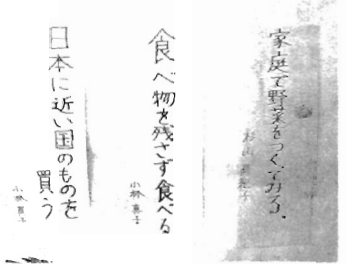 家庭で野菜をつくってみる。
食べ物を残さず食べる
小林
日本に近い国のものを
買う
小林